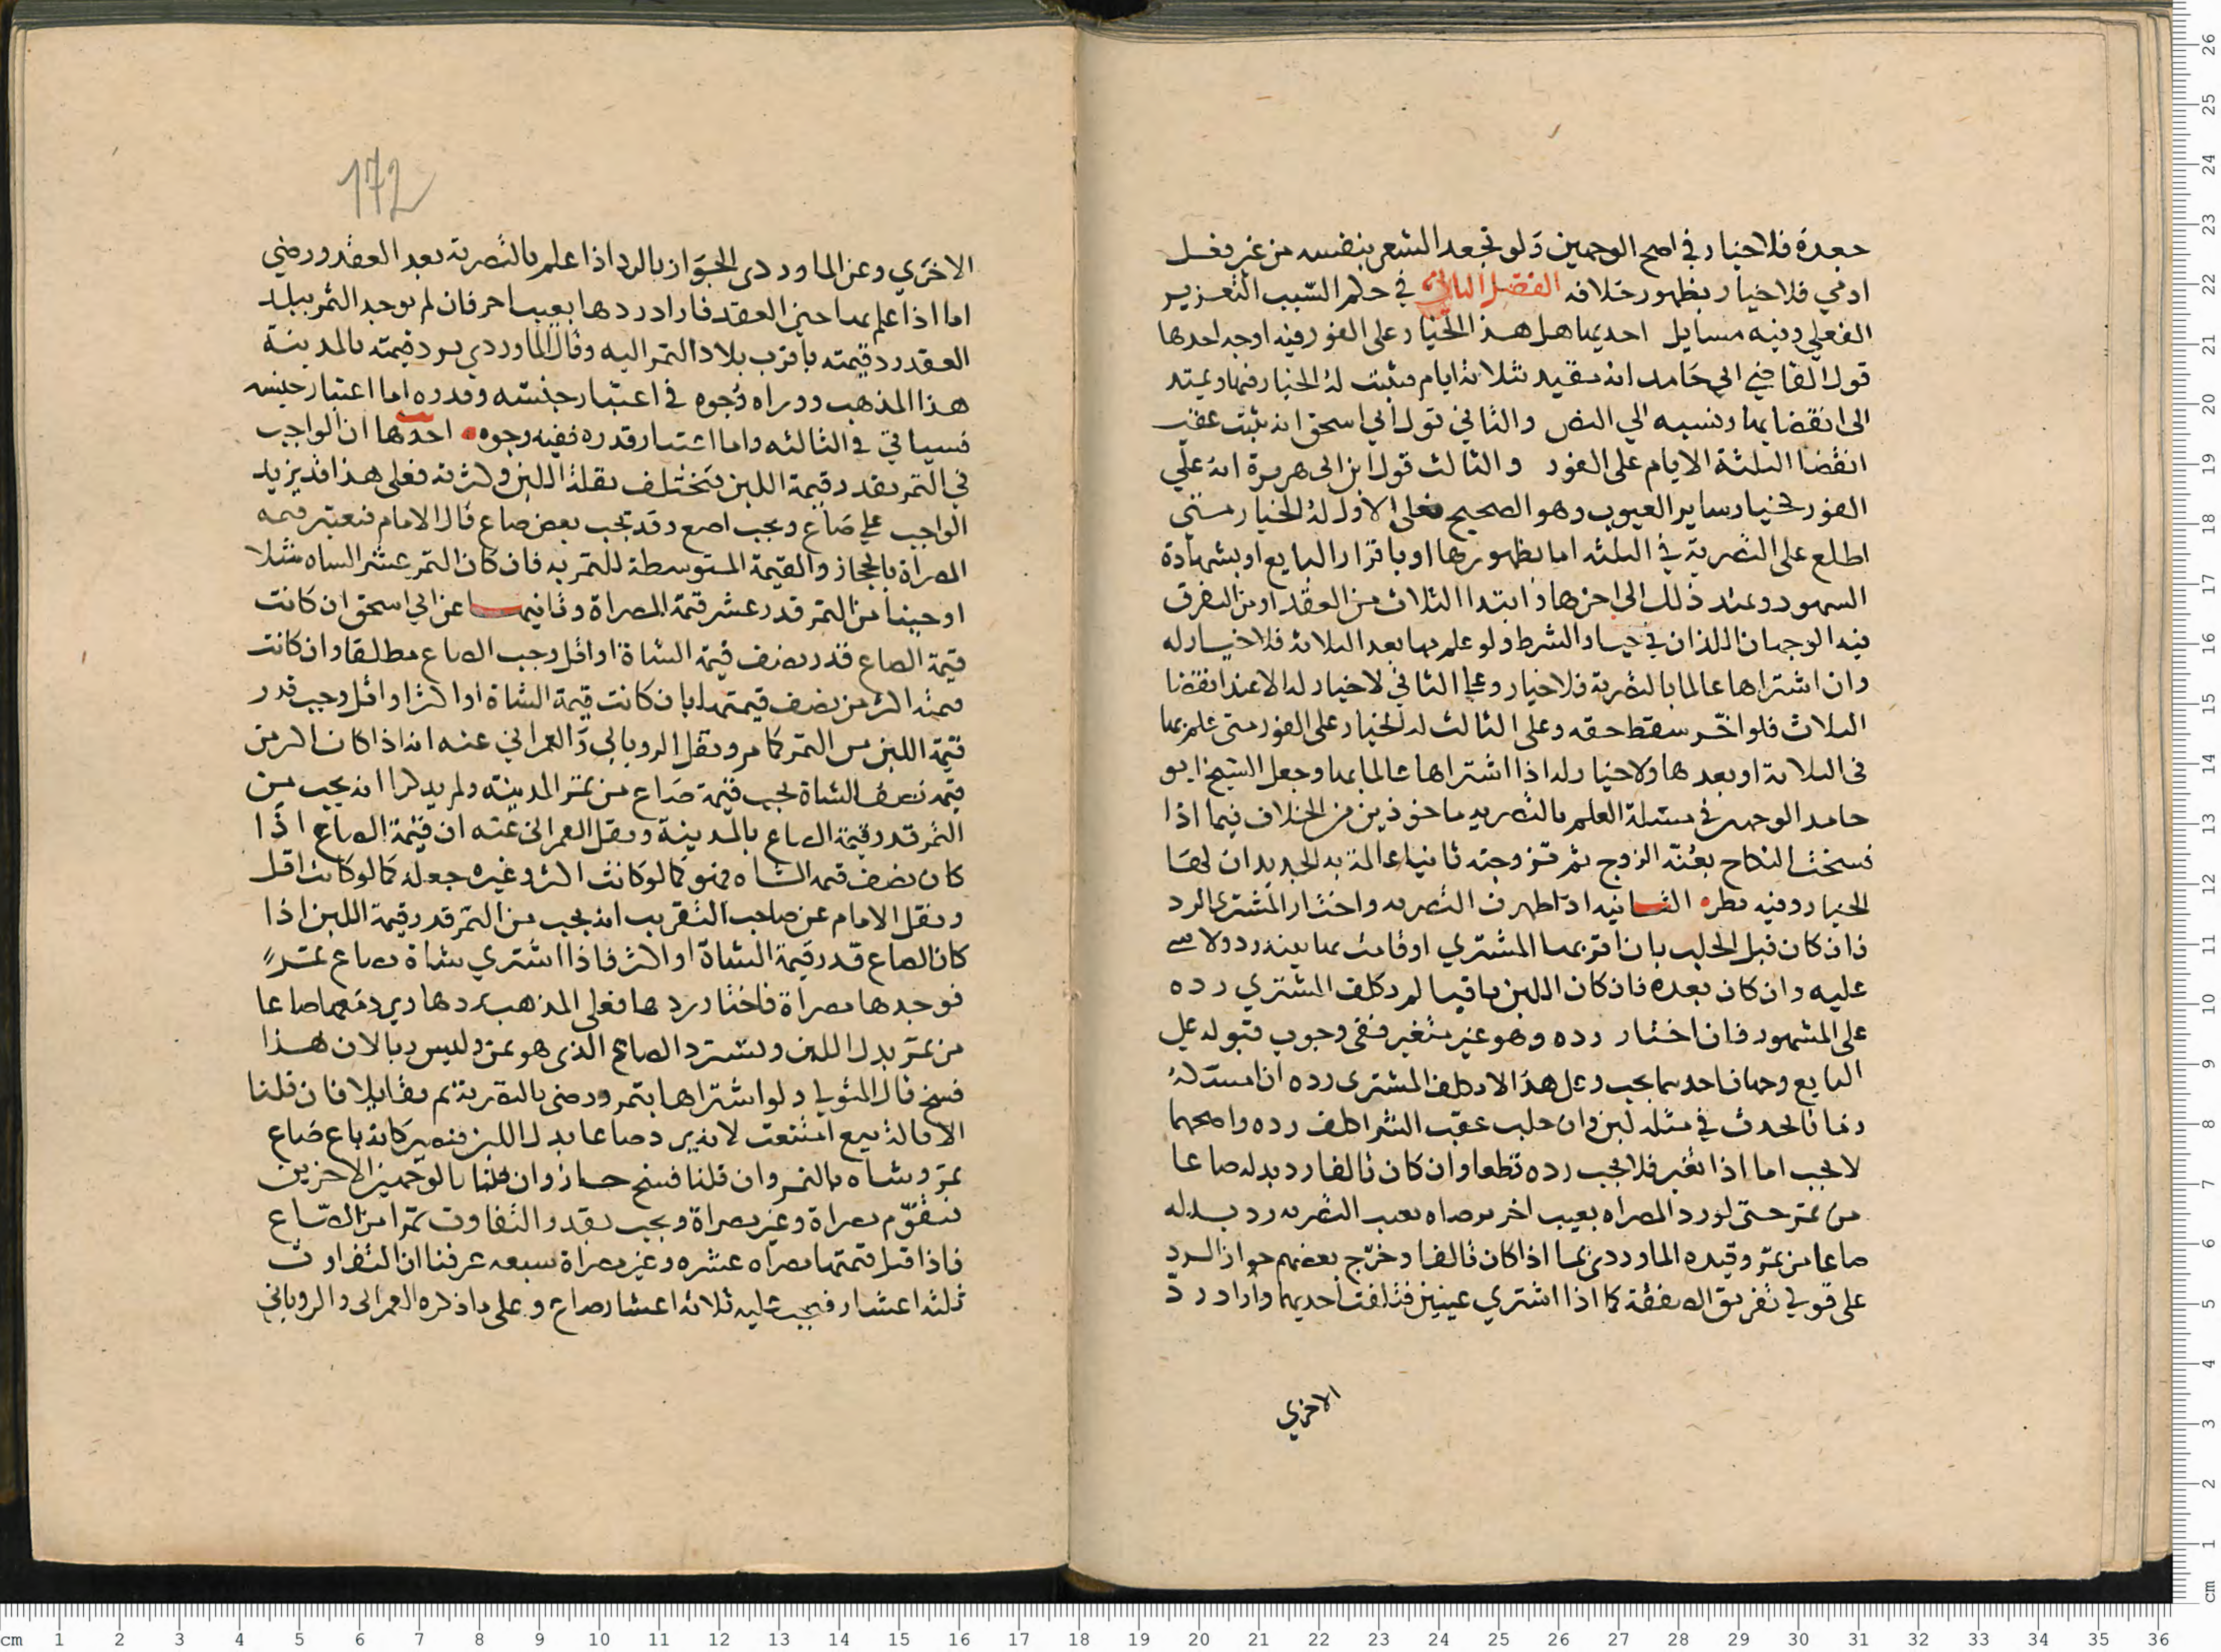 جعدة فلا خيار في اصح الوجهين ولو تجعد الشعر بنفسه من غير فعل
ادمي فلا خيار بظهور خلافه الفصل الثاني في حكم السبب التغرير
الفعلي وفيه مسايل احديها هل هذا الخيار على الفور فيه اوجه احدها
قول القاضي ابي حامد انه مقيد بثلاثة ايام فيثبت له الخيار فيها ويمتد
الى انقضايها ونسبه الي النص والثاني قول ابي اسحق انه يثبت عقيب
انقضا الثلثة الايام على الفور والثالث قول ابن ابى هريرة انه علي
الفور كخيار ساير العيوب وهو الصحيح فعلى الاول له الخيار متي
اطلع على التصرية في الثلثه اما بظهورها او باقرار البايع او بشهادة
الشهود ويمتد ذلك الى اخرها وابتدا الثلاث من العقد او من التفرق
فيه الوجهان اللذان في خيار الشرط ولو علم بها بعد الثلاثة فلا خيار له
وان اشتراها عالما بالتصرية فلا خيار وعلى الثاني لا خيار له الا عند انقضا
الثلاث فلو اخر سقط حقه وعلى الثالث له الخيار على الفور متى علم بها
فى الثلاثة او بعدها ولا خيار له اذا اشتراها عالما بها وجعل الشيخ ابو
حامد الوجهين في مسئلة العلم بالتصريه ماخوذين من الخلاف فيما اذا
فسخت النكاح بعنة الزوج ثم تزوجته ثانيا عالمة به الجديد ان لها
الخيار وفيه نظر الثانيه اذا ظهرت التصريه واختار المشترى الرد
فان كان قبل الحلب بان اقر بها المشتري او قامت بها بينه رد ولا شي
عليه وان كان بعده فان كان اللبن باقيا لم يكلف المشتري رده
على المشهور فان اختار رده وهو غير متغير ففى وجوب قبوله على
البايع وجهان احدهما يجب وعلى هذا لا يكلف المشترى رده ان امسك له
زمانا لحدث في مثله لبن وان حلب عقب الشرا كلف رده واصحهما
لا يجب اما اذا تغير فلا يجب رده قطعا وان كان تالفا رد بدله صاعا
من تمر حتى لو رد المصراه بعيب اخر ورضاه بعيب التصريه رد بدله
صاعا من تمر وقيده الماوردي بما اذا كان تالفا وخرج بعضهم جواز الرد
على قولي تفريق الصفقة كما اذا اشتري عينين فتلفت احديهما واراد رد
الاخري
172
الاخري وعن الماوردى الجواز بالرد اذا علم بالتصرية بعد العقد ورضي
اما اذا علم بها حين العقد فاراد ردها بعيب اخر فان لم يوجد التمر ببلد
العقد رد قيمته باقرب بلاد التمر اليه وقال الماوردي يرد قيمته بالمدينة
هذا المذهب ووراه وجوه في اعتبار جنسه وقدره اما اعتبار جنسه
فسياتي في الثالثه واما اعتبار قدره ففيه وجوه احدها ان الواجب
في التمر بقدر قيمة اللبن فتختلف بقلة اللبن وكثرته فعلى هذا قد يزيد
الواجب على صاع ويجب اصع وقد تجب بعض صاع قال الامام فتعتبر قيمه
المصراة بالحجاز والقيمة المتوسطة للتمر به فان كان التمر عشر الشاه مثلا
اوجبنا من التمر قدر عشر قيمة المصراة وثانيها عن ابي اسحق ان كانت
قيمة الصاع قدر نصف قيمة الشاة او اقل وجب الصاع مطلقا وان كانت
قيمته اكثر من نصف قيمتها بان كانت قيمة الشاة او اكثر او اقل وجب قدر
قيمة اللبن من التمر كما مر ونقل الروياني والعمراني عنه انه اذا كان اكثر من
قيمة نصف الشاة يجب قيمة صاع من تمر المدينه ولم يذكرا انه يجب من
التمر قدر قيمة الصاع بالمدينة ونقل العمرانى عنه ان قيمة الصاع اذا
كان نصف قيمه الشاه فهو كما لو كانت اكثر وغيره جعله كما لو كانت اقل
ونقل الامام عن صاحب التقريب انه يجب من التمر قدر قيمة اللبن اذا
كان الصاع قدر قيمة الشاة او اكثر فاذا اشتري شاة بصاع تمر
فوجدها مصراة فاختار ردها فعلى المذهب يردها ويرد معها صاعا
من تمر بدل اللبن ويسترد الصاع الذي هو ثمن وليس ربا لان هذا
فسخ قال المتولي ولو اشتراها بتمر ورضى بالتصرية ثم تقايلا فان قلنا
الاقالة بيع امتنعت لانه يرد صاعا بدل اللبن فيصير كانه باع صاع
تمر وشاه بالتمر وان قلنا فسخ جاز وان قلنا بالوجهين الاخرين
فتقوم مصراة وغير مصراة ويجب بقدر التفاوت تمرا من الصاع
فاذا قيل قيمتها مصراه عشره وغير مصراة سبعه عرفنا ان التفاوت
ثلثه اعشار فيجب عليه ثلاثه اعشار صاع وعلى ما ذكره العمرانى والروياني